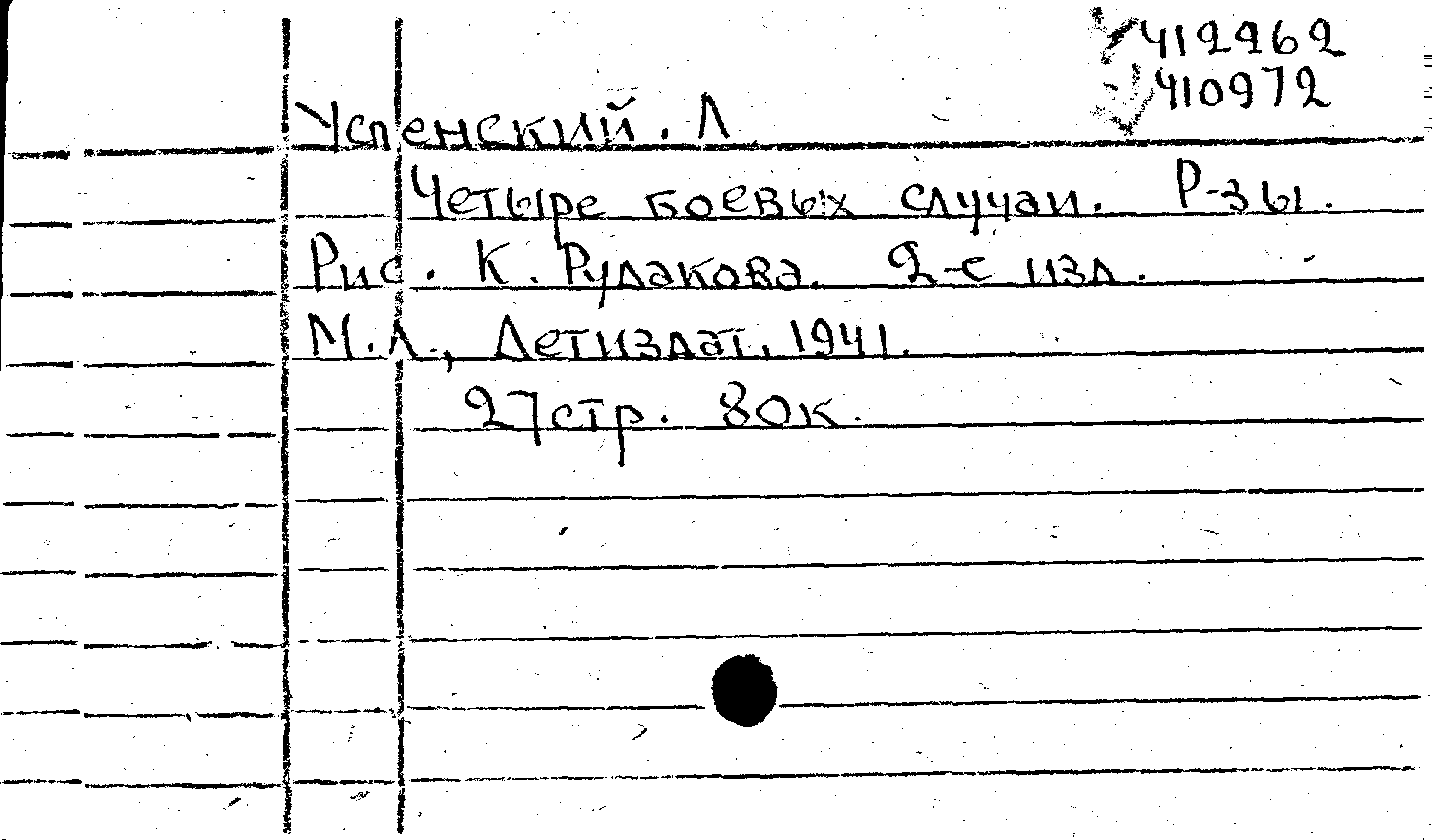 412262
410972
Успенский. Л
Четыре боевых случаи. Р-зы.
Рис. К. Рудакова. 2-е изд.
М.Л., Детиздат, 1941.
27стр. 80к.